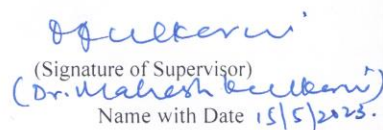 (Signature of Supervisor)
(Dr. Mahesh Kulkarni)
Name with Date 15/5/2023.